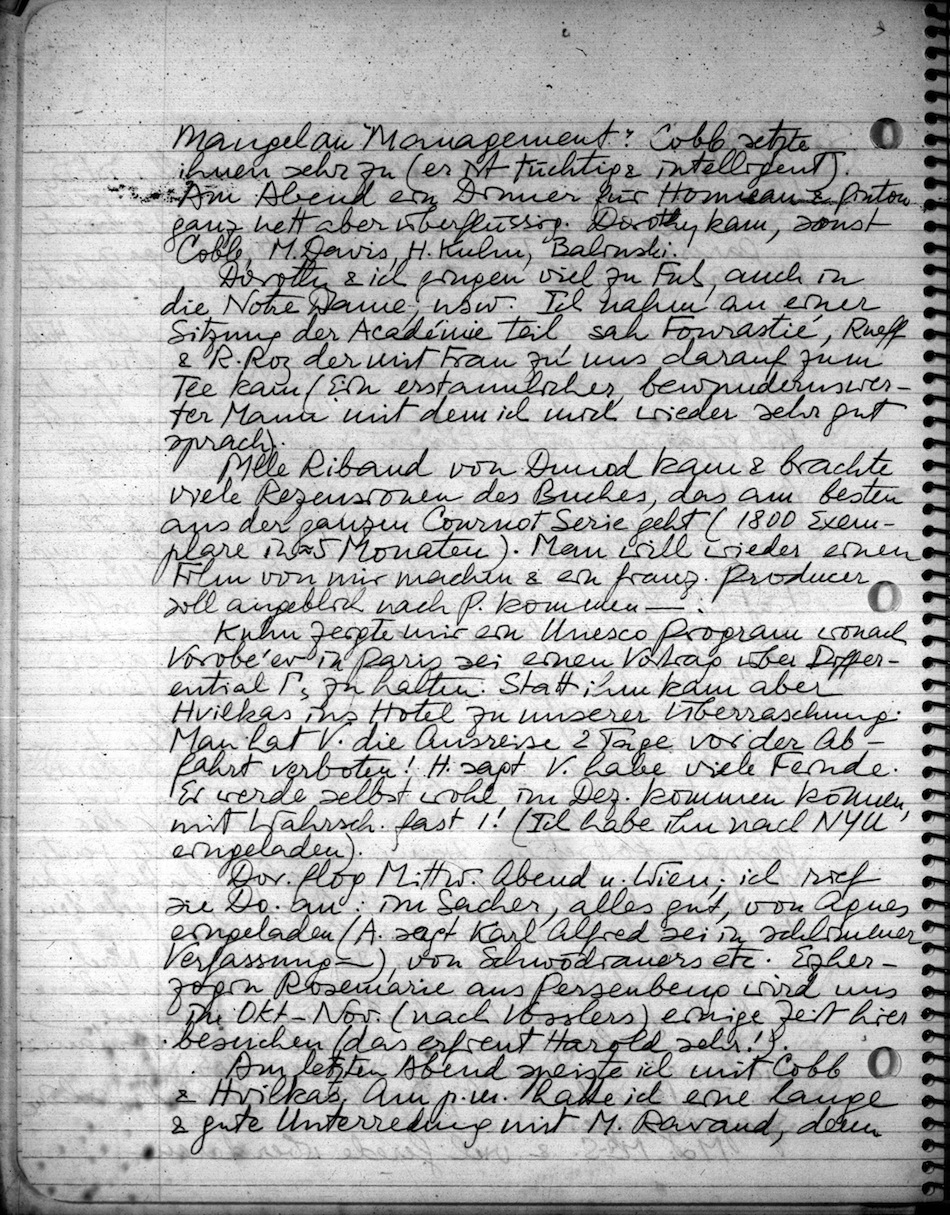 Mangel an "Management". Cobb setzte
ihnen sehr zu (er ist tüchtig & intelligent).
Am Abend ein Dinner für
ganz nett aber überflüssig. Dorothy kam, sonst
Cobb, M. Davis, H. Kuhn, Balinski.
Dorothy & ich gingen viel zu Fuß, auch in
die Notre Dame, usw. Ich nahm an einer
Sitzung der Académie teil sah Fourastié, Rueff
& R. Roy der mit Frau zu uns darauf zum
Tee kam (Ein erstaunlicher, bewundernswer-
ter Mann mit dem ich mich wieder sehr gut
sprach).
Mlle Ribaud von Dunod kam & brachte
viele Rezensionen des Buches, das am besten
aus der ganzen Cournot Serie geht (1800 Exem-
plare in ≈5 Monaten). Man will wieder einen
Film von mir machen & ein franz. Producer
soll angeblich nach P. kommen — .
Kuhn zeigte mir ein Unesco Program wonach
Vorobe'ev in Paris sei einen Vortrag über Differ-
ential Γs zu halten. Statt ihm kam aber
Hvilkas ins Hotel zu unserer Überraschung.
Man hat V. die Ausreise 2 Tage vor der Ab-
fahrt verboten! H. sagt V. habe viele Feinde.
Er werde selbst wohl im Dez. kommen können,
mit Wahrsch. fast 1! (Ich habe ihn nach NYU
eingeladen).
Dor. flog Mittw. Abend n. Wien; ich rief
sie Do. an: im Sacher, alles gut, von Agnes
eingeladen (A. sagt Karl Alfred sei in schlimmer
Verfassung —), von etc. Erzher-
zogin Rosemarie aus Persenbeug wird uns
im Okt-Nov. (nach Vosslers) einige Zeit hier
besuchen (das erfreut Harold sehr!).
Am letzten Abend speiste ich mit Cobb
& Hvilkas. Am p.m. hatte ich eine lange
& gute Unterredung mit M. denn